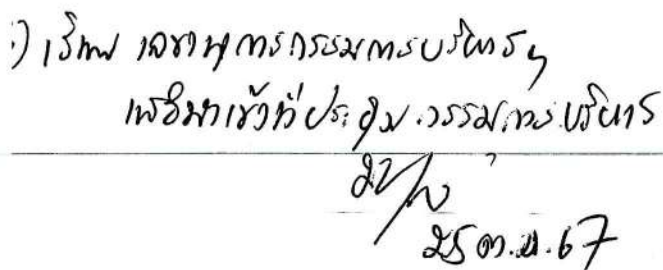 ) เรียน เลขานุการกรรมการบริหารฯ
เพื่อนำเข้าที่ประชุม กรรมการบริหาร
25 ต.ค. 67